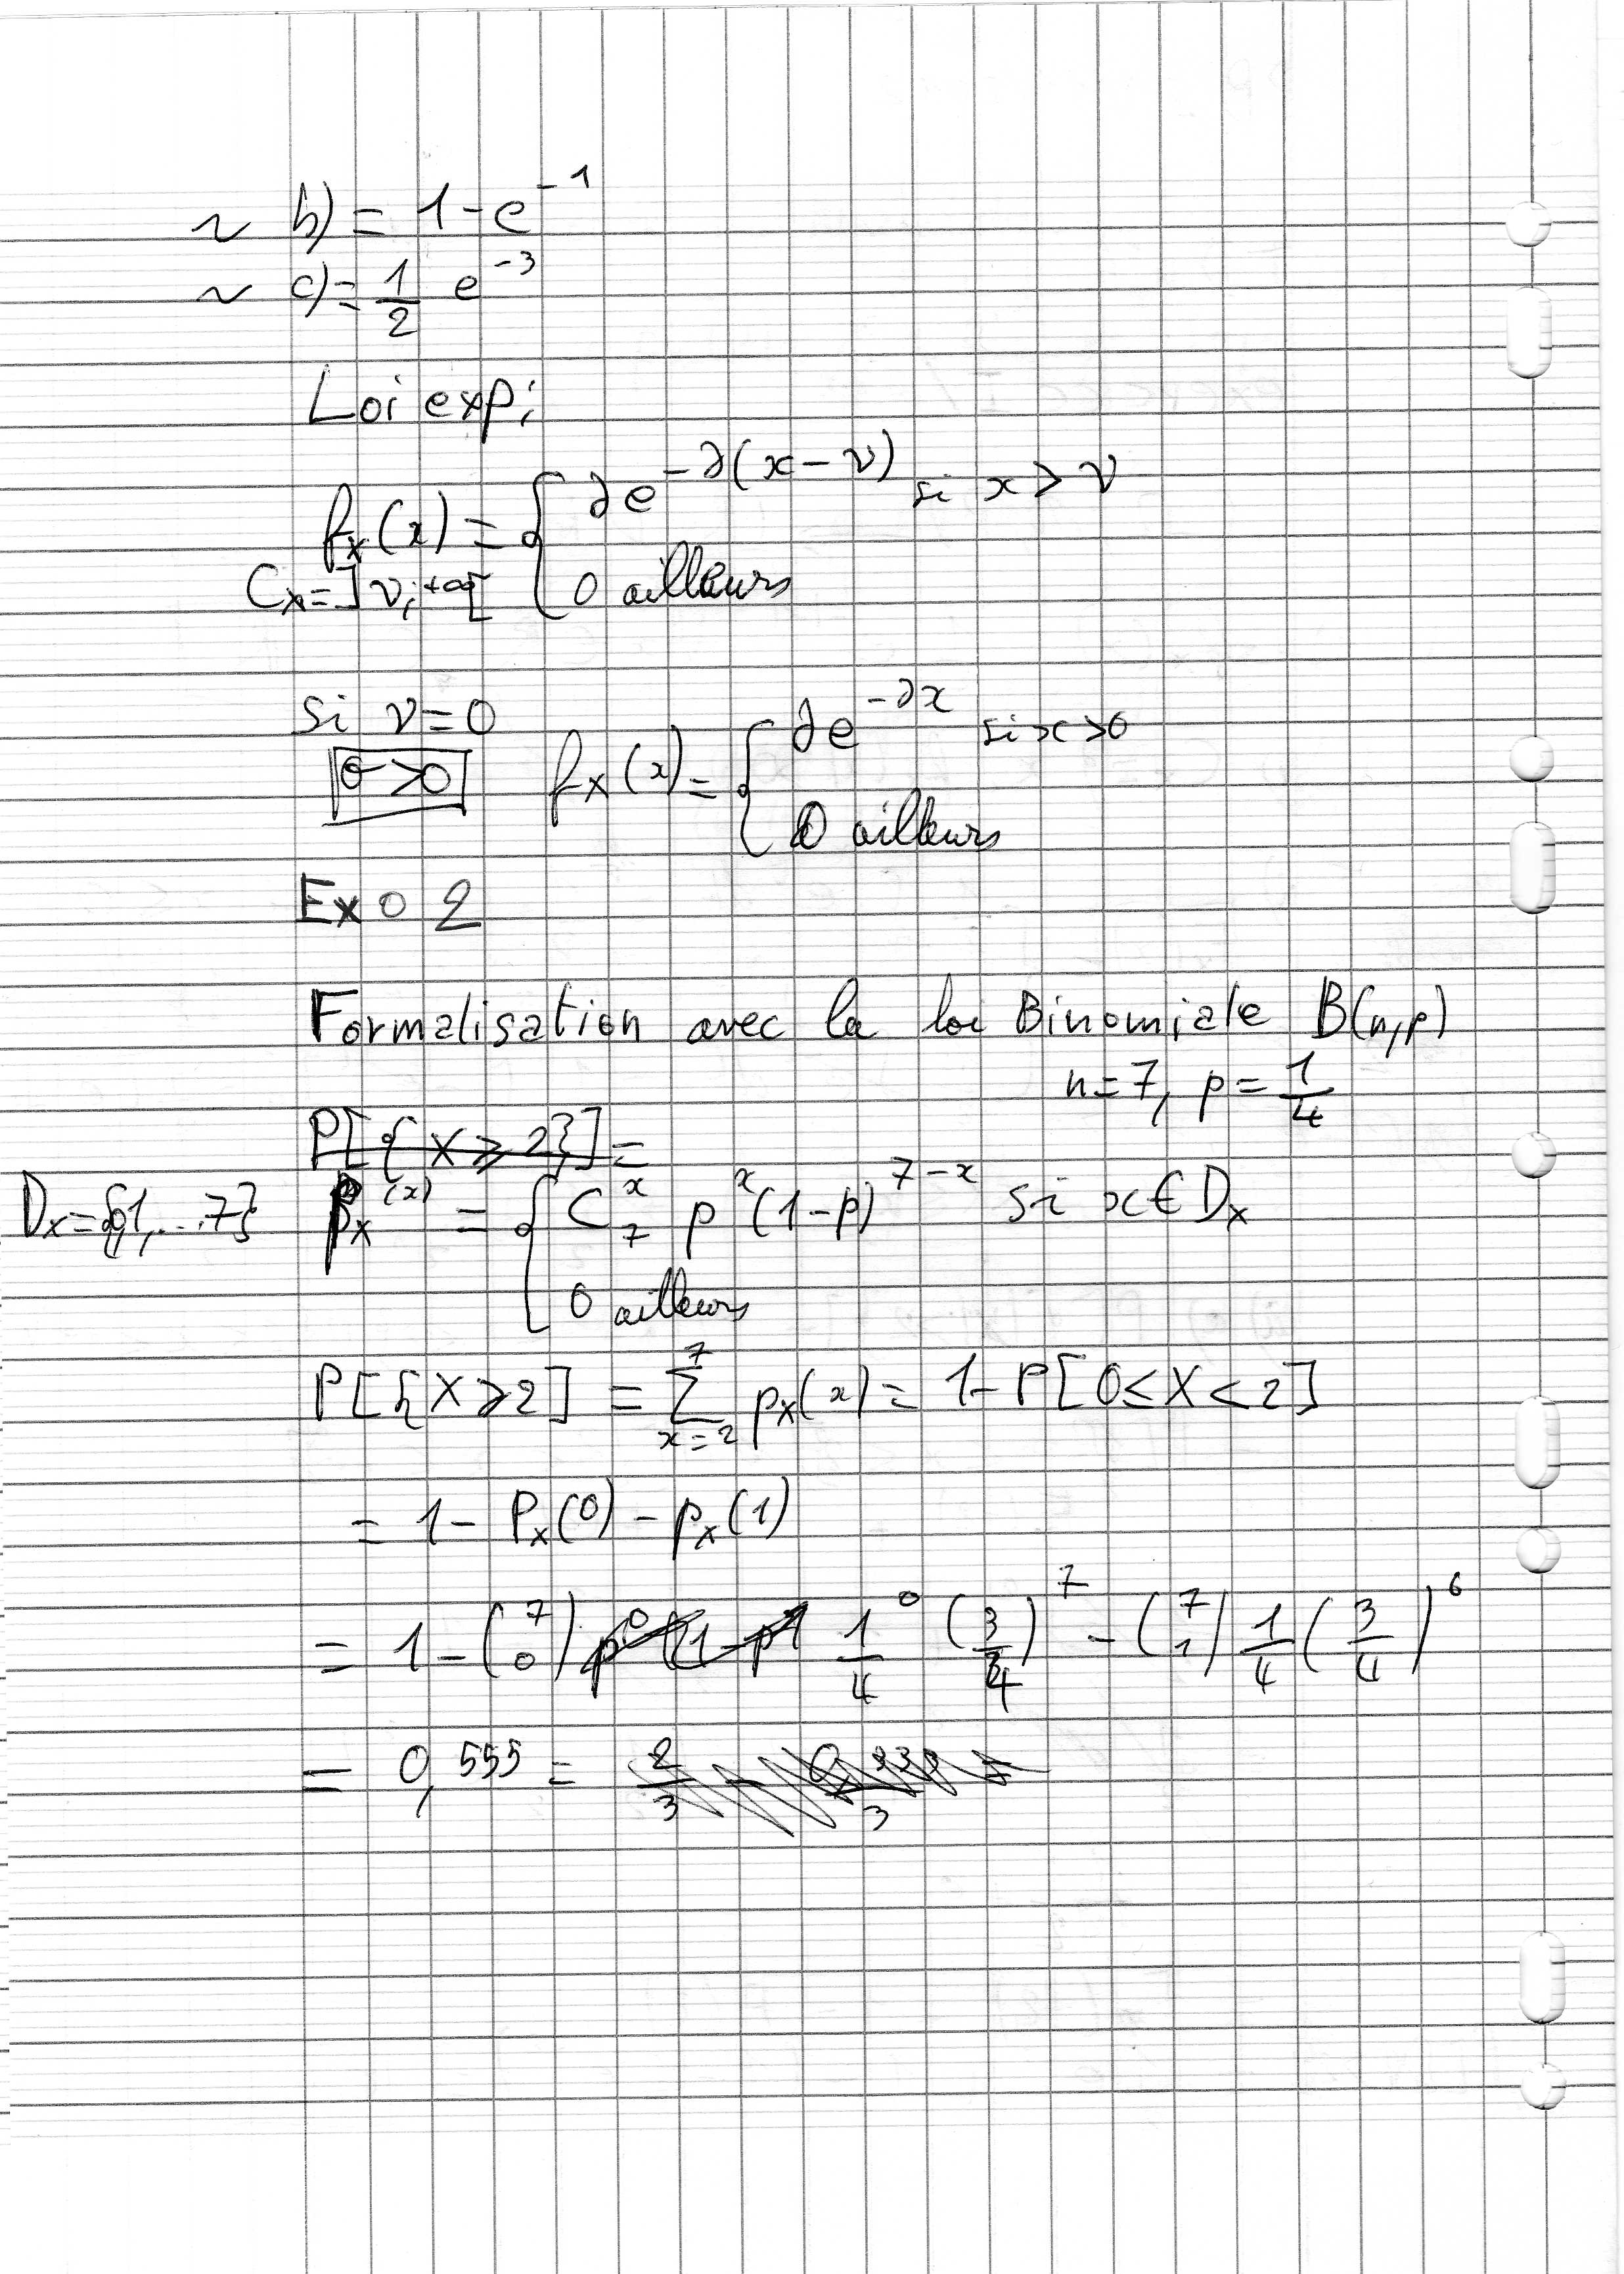 ~ b) = 1 - e^{-1}
~ c) = \frac{1}{2} e^{-3}
Loi exp :
f_x(x) = { ∂e^{-∂(x-ν)} si x > ν
C_x = ]ν; +∞[ { 0 ailleurs
si ν = 0
σ > 0
f_X(x) = { ∂e^{-∂x} si x > 0
{ 0 ailleurs
Exo 2
Formalisation avec la loi Binomiale B(n,p)
n = 7, p = \frac{1}{4}
P[{X ⩾ 2}] =
D_x = {0,1,...7} p_x(x) = { C_7^x p^x (1-p)^{7-x} si x ∈ D_x
{ 0 ailleurs
P[{X ⩾ 2] = \sum_{x=2}^{7} p_X(x) = 1 - P[0 ≤ X < 2]
= 1 - P_x(0) - p_x(1)
= 1 - \binom{7}{0} \frac{1}{4}^0 (\frac{3}{4})^7 - \binom{7}{1} \frac{1}{4} (\frac{3}{4})^6
= 0,555 =